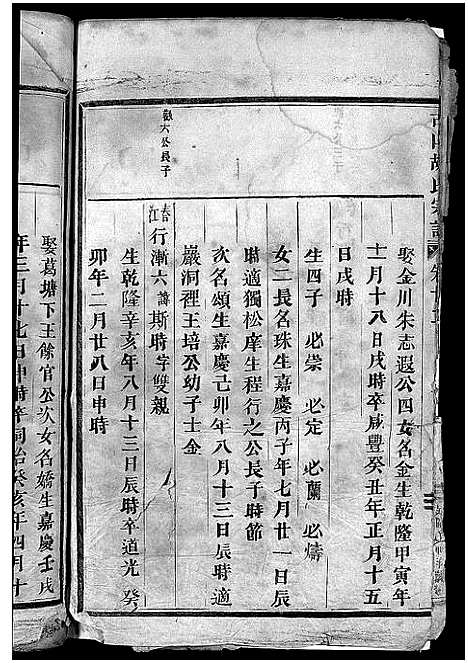 胡氏宗譜
娶金川朱志遐公四女名金生乾隆甲寅年
十二月十八日戌時卒咸豐癸丑年正月十五
日戌時
生四子 必崇 必定 必蘭 必燽
女二長名珠生嘉慶丙子年七月廿一日辰
時適獨松庠生程行之公長子時節
次名頌生嘉慶己卯年八月十三日辰時適
巖洞裡王培公幼子士金
歡六公長子
春江行漸六諱斯時字雙親
生乾隆辛亥年八月十三日辰時卒道光癸
卯年二月廿八日申時
娶葛塘下王餘官公次女名嬌生嘉慶壬戌
年三月十七日申時卒同治癸亥年四月十